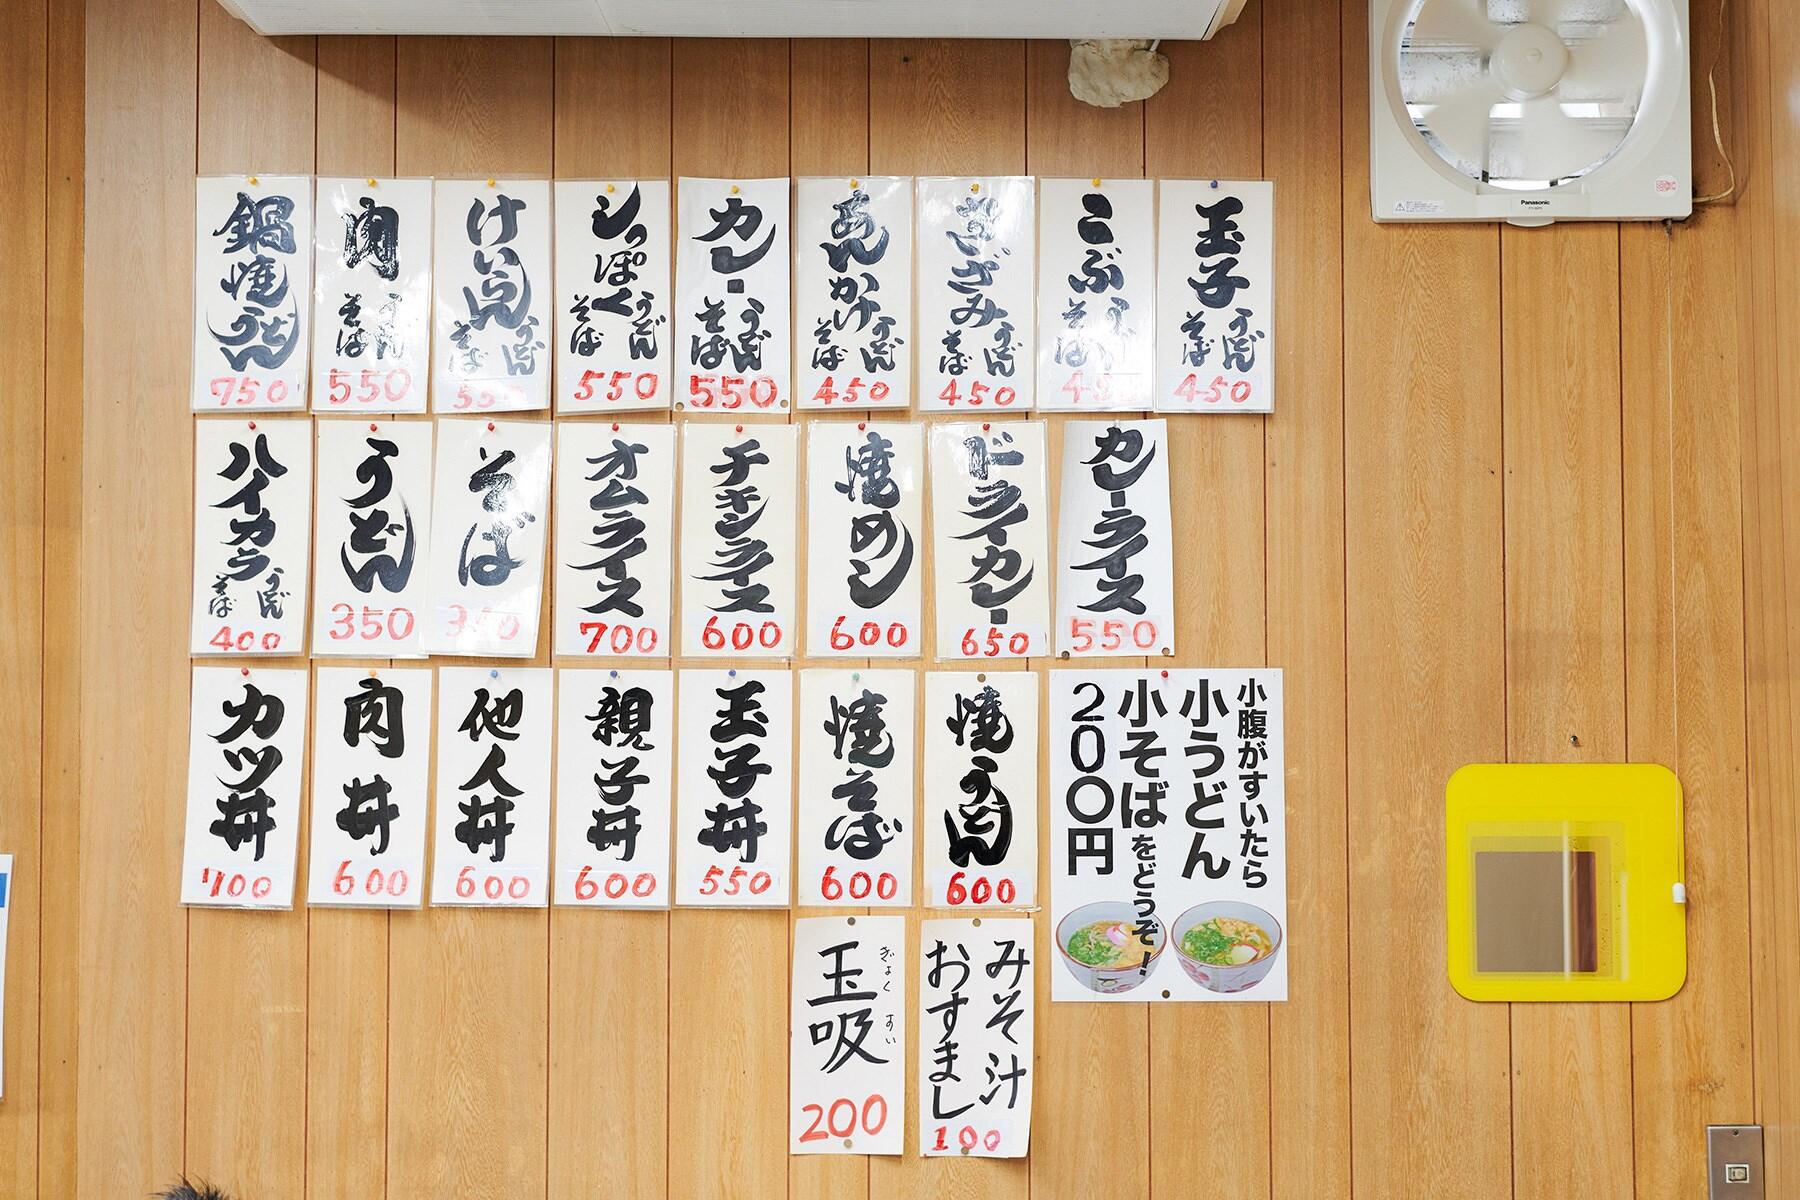 玉子 うどん そば 450
こぶ うどん そば 450
きざみ うどん そば 450
あんかけ うどん そば 450
カレー うどん そば 550
しっぽく うどん そば 550
けいらん うどん そば 550
肉 うどん そば 550
鍋焼うどん 750
カレーライス 550
ドライカレー 650
焼めし 600
チキンライス 600
オムライス 700
そば 350
うどん 350
ハイカラ うどん そば 400
小腹がすいたら
小うどん
小そばをどうぞ!
200円
焼うどん 600
焼そば 600
玉子丼 550
親子丼 600
他人丼 600
肉丼 600
カツ丼 700
みそ汁
おすまし
100
玉吸 ぎょく すい
200
Panasonic